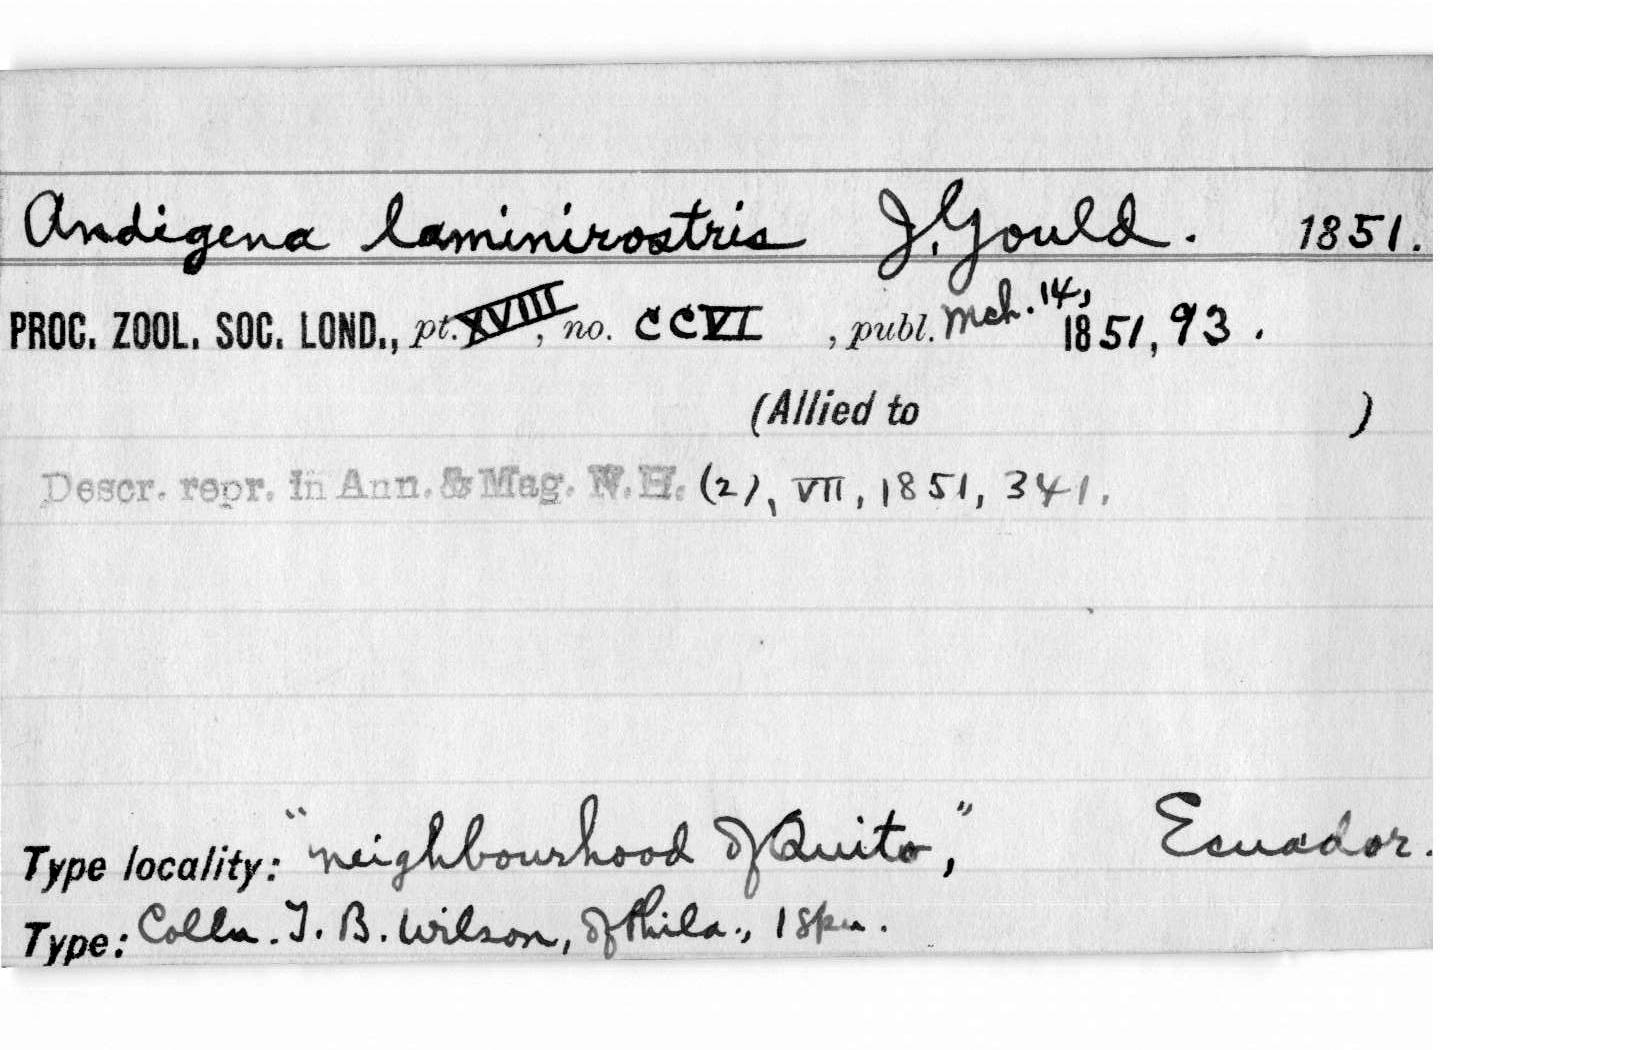 Andigena laminirostris J. Gould. 1851.
PROC. ZOOL. SOC. LOND., pt. XVIII, no. CCVI, publ. Mch. 14, 1851, 93.
(Allied to )
Descr. repr. in Ann. & Mag. N.H. (2), VII, 1851, 341.
Type locality: "neighbourhood of Quito," Ecuador.
Type: Colln. T. B. Wilson, of Phila., 1 spn.